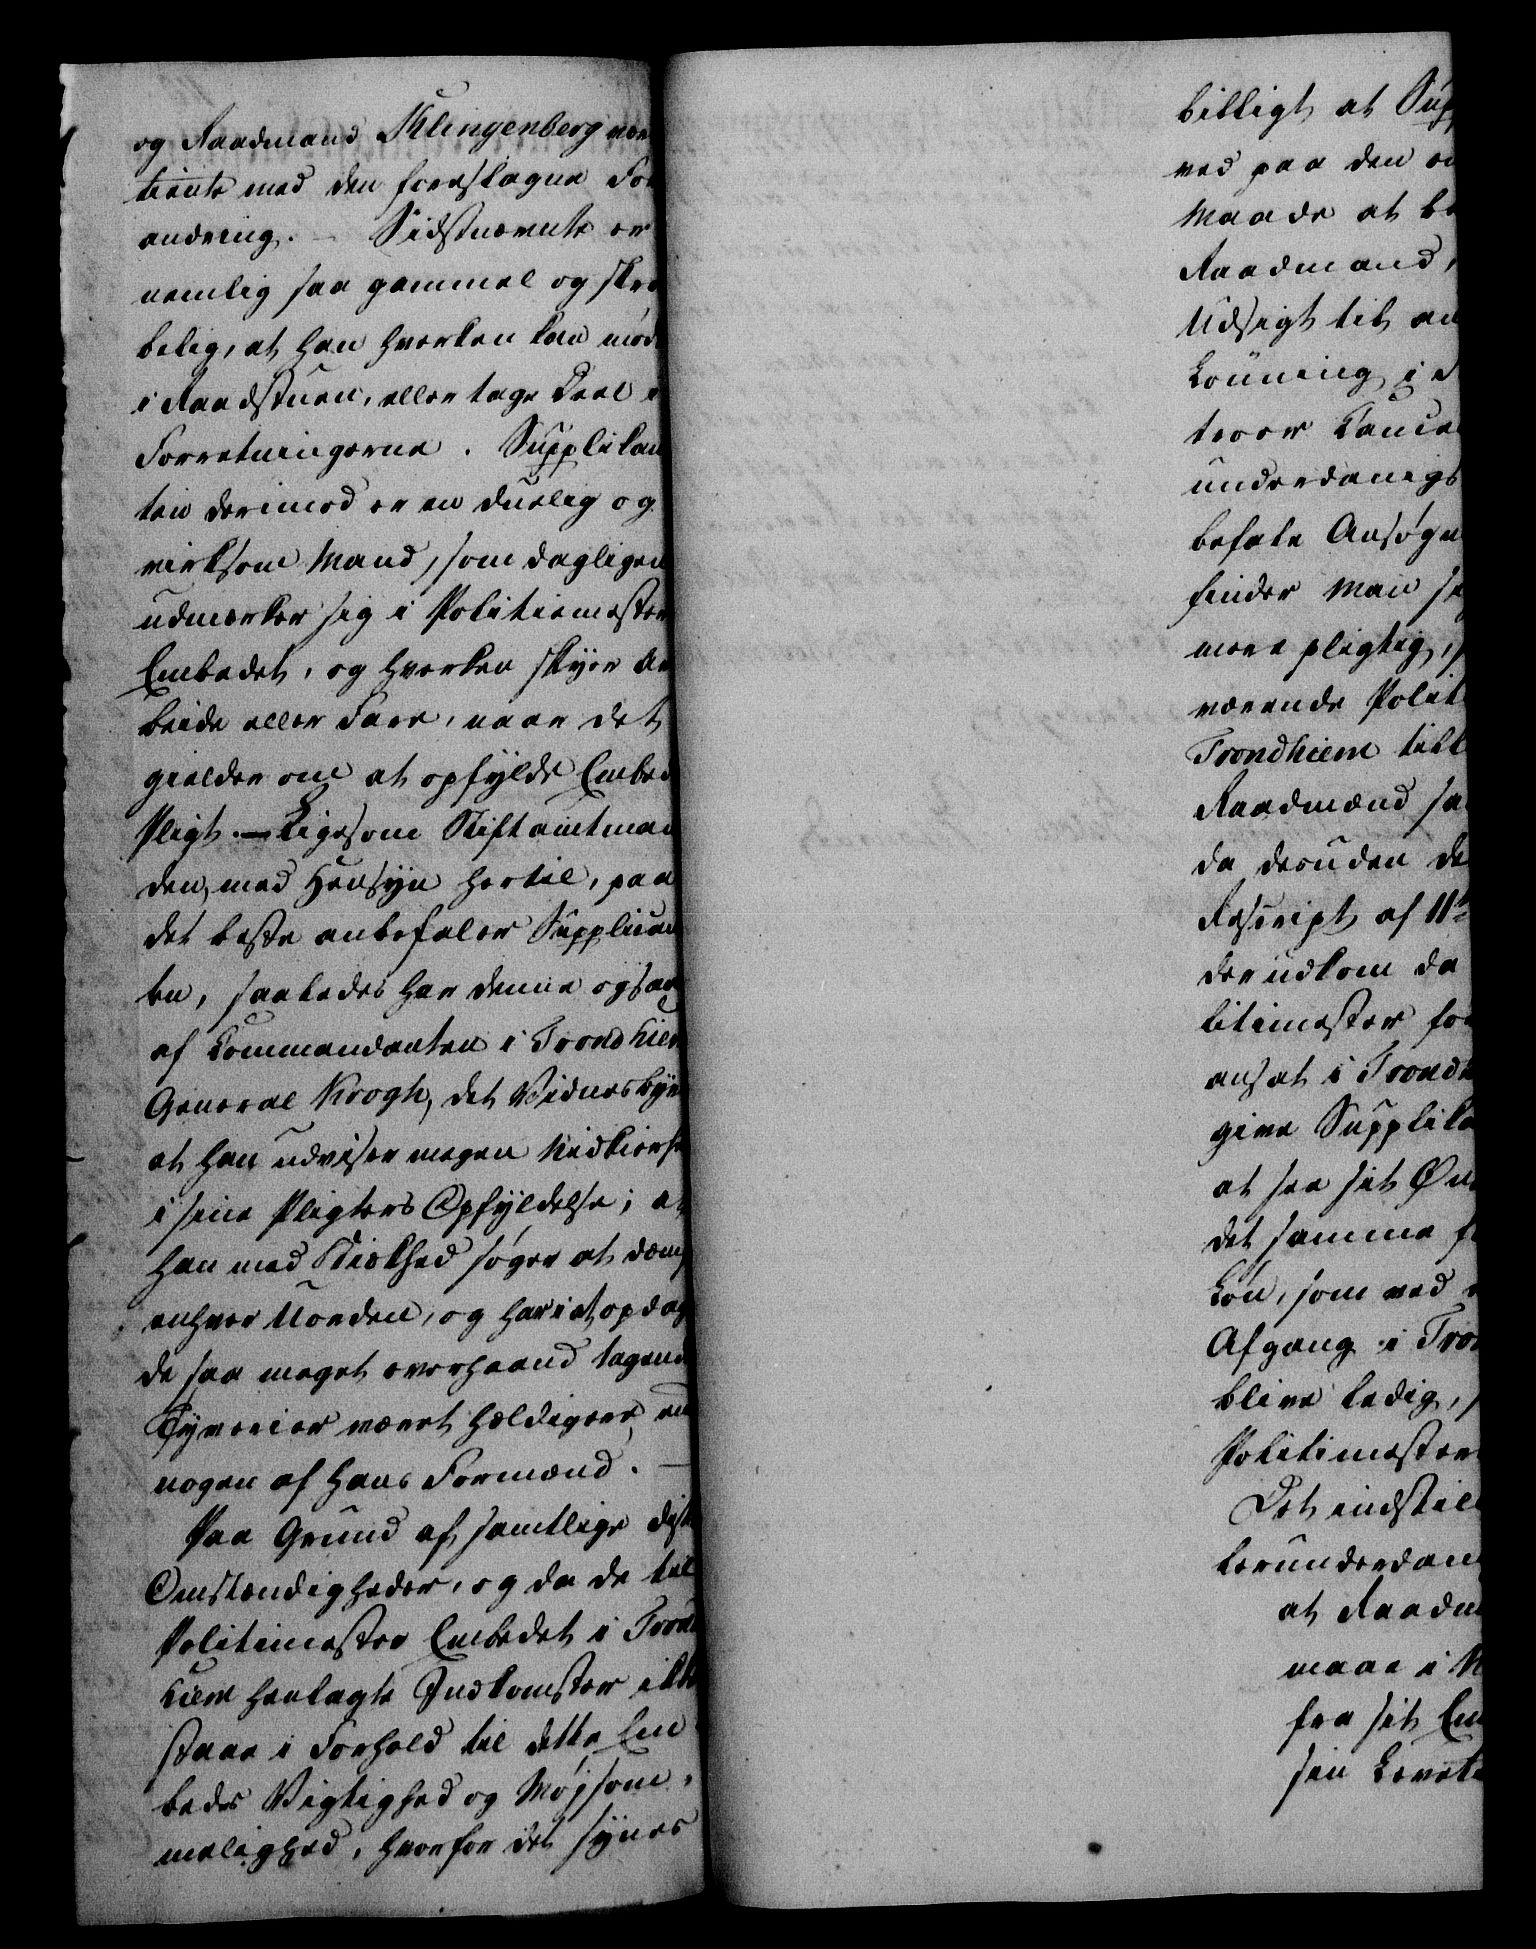 og Raadmand Klingenberg nær
tiente med den foreslagne For
andring. – Sidstnævnte er
nemlig saa gammel og skrø
belig, at han hverken kan møde
i Raadstuen, eller tage Deel i
Forretningerne. Supplikan
ten derimod er en duelig og
virksom Mand, som dagligen
udmærker sig i Politiemester
Embedet, og hverken skyer Ar
beide eller Fare, naar det
gielder om at opfylde Embeds
Pligt. — Ligesom Stiftamtman
den, med Hensyn hertil, paa
det beste anbefaler Supplican
ten, saaledes har denne ogsaa
af Commandanten i Trondhiem
General Krogh, det Vidnesbyrd
at han udviser megen Nidkierhed
i sine Pligters Opfyldelse; at
han med Kiekhed søger at dæmpe
enhver Uorden, og har i at opdage
de saa meget overhaand tagende
Tyverier været heldigere, end
nogen af hans Formænd. —
Paa Grund af samtlige disse
Omstændigheder, og da de til
Politimester Embedet i Trond
hiem henlagte Indkomster ikke
staae i Forhold til dette Em
bedes Vigtighed og Møjsom,
melighed, hvorfor det synes
billigt at Supp
ved paa den
Maade at be
Raadmand,
Udsigt til
Lønning i
troer Cancel
underdanigs
befale Ansøgn
finder man sig
mere pligtig,
værende Polit
Trondhiem till
Raadmænd saa
da desuden de
Rescript af 11te
der udkom da
litimester for
ansat i Trondh
give Supplika
at see sit Øn
det samme f
Løn, som ved
Afgang i Tron
blive ledig,
Politimester
Det indstil
lerunderdan
at Raadm
maae i N
fra sit Em
sin Levet